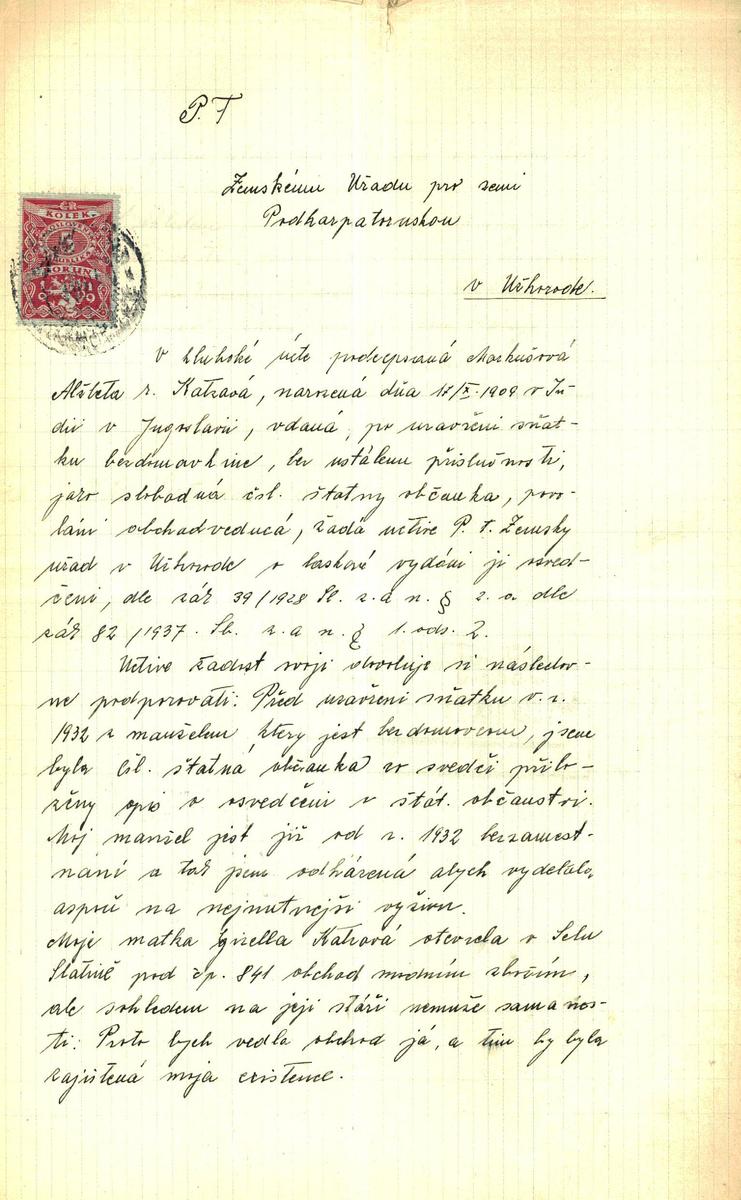 P. T
Zemskému Úřadu pro zemi
Podkarpatoruskou
v Užhorode.
ČR
KOLEK
KORUNA
1919
V hlubské úcte podepsaná Markušová
Alžbeta r. Katzová, narozená dňa 17/X. 1909 v In-
dii v Jugoslavii, vdaná, po uzavřeni sňat-
ku bezdomovkine, bez ustálenu příslučnosti,
jako slobodná čsl. štatny občanka, povo-
láni obchodveducá, žadá uctive P. T. Zemsky
uřad v Užhorode o laskavé vydáni ji osved-
čeni, dle zák 39/1928 Sb. z. a n. § 2. a dle
zák 82/1937. Sb. z. a n. § 1. ods. 2.
Uctive žadost svoji dovoluje si násled​ov-
ne podporovati: Před uzavřeni sňatku v. r.
1932 z manželem, ktery jest bezdomovcem, jsem
byla čsl. štatná občanka co svedči přilo-
žény opis o osvedčeni v štát. občanstvi.
Moj manžel jest již od r. 1932 bezzamest-
náni a tak jsem odkázená abych vydelala
aspoú na nejnutnejši vyživu.
Moje matka Gizella Katzová otevrela v Selu
Slatině pod čp. 841 obchod modním zbožím,
ale sohledem na její stáři nemuže sama nos-
ti: Proto bych vedla obchod já, a tim by byla
zajištená moja existence.